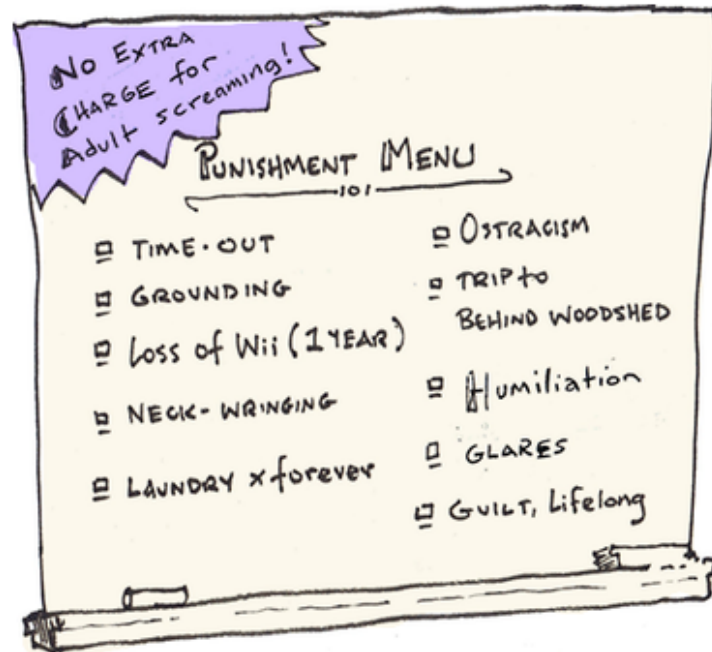 No Extra
Charge for
Adult screaming!
Punishment Menu
101
Time-out
Grounding
Loss of Wii (1 year)
Neck-wringing
Laundry x forever
Ostracism
Trip to
Behind Woodshed
Humiliation
Glares
Guilt, Lifelong